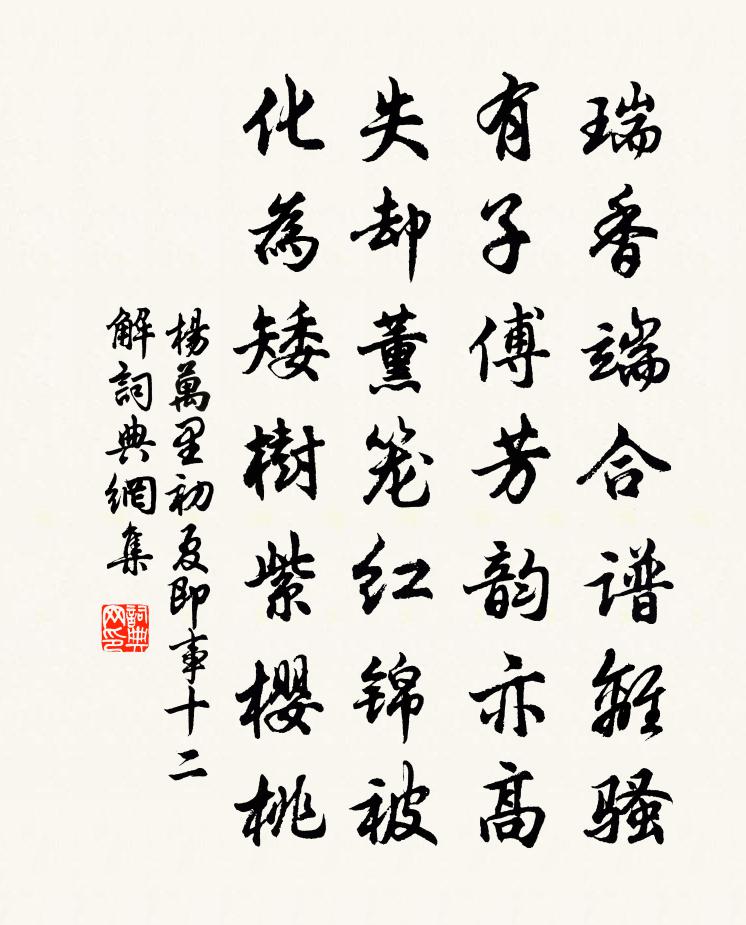 瑞香端合谱離骚
有子傅芳韵亦高
失却薰笼红锦被
化為矮樹紫櫻桃
楊萬里初夏即事十二
解詞典網集
詞典网印